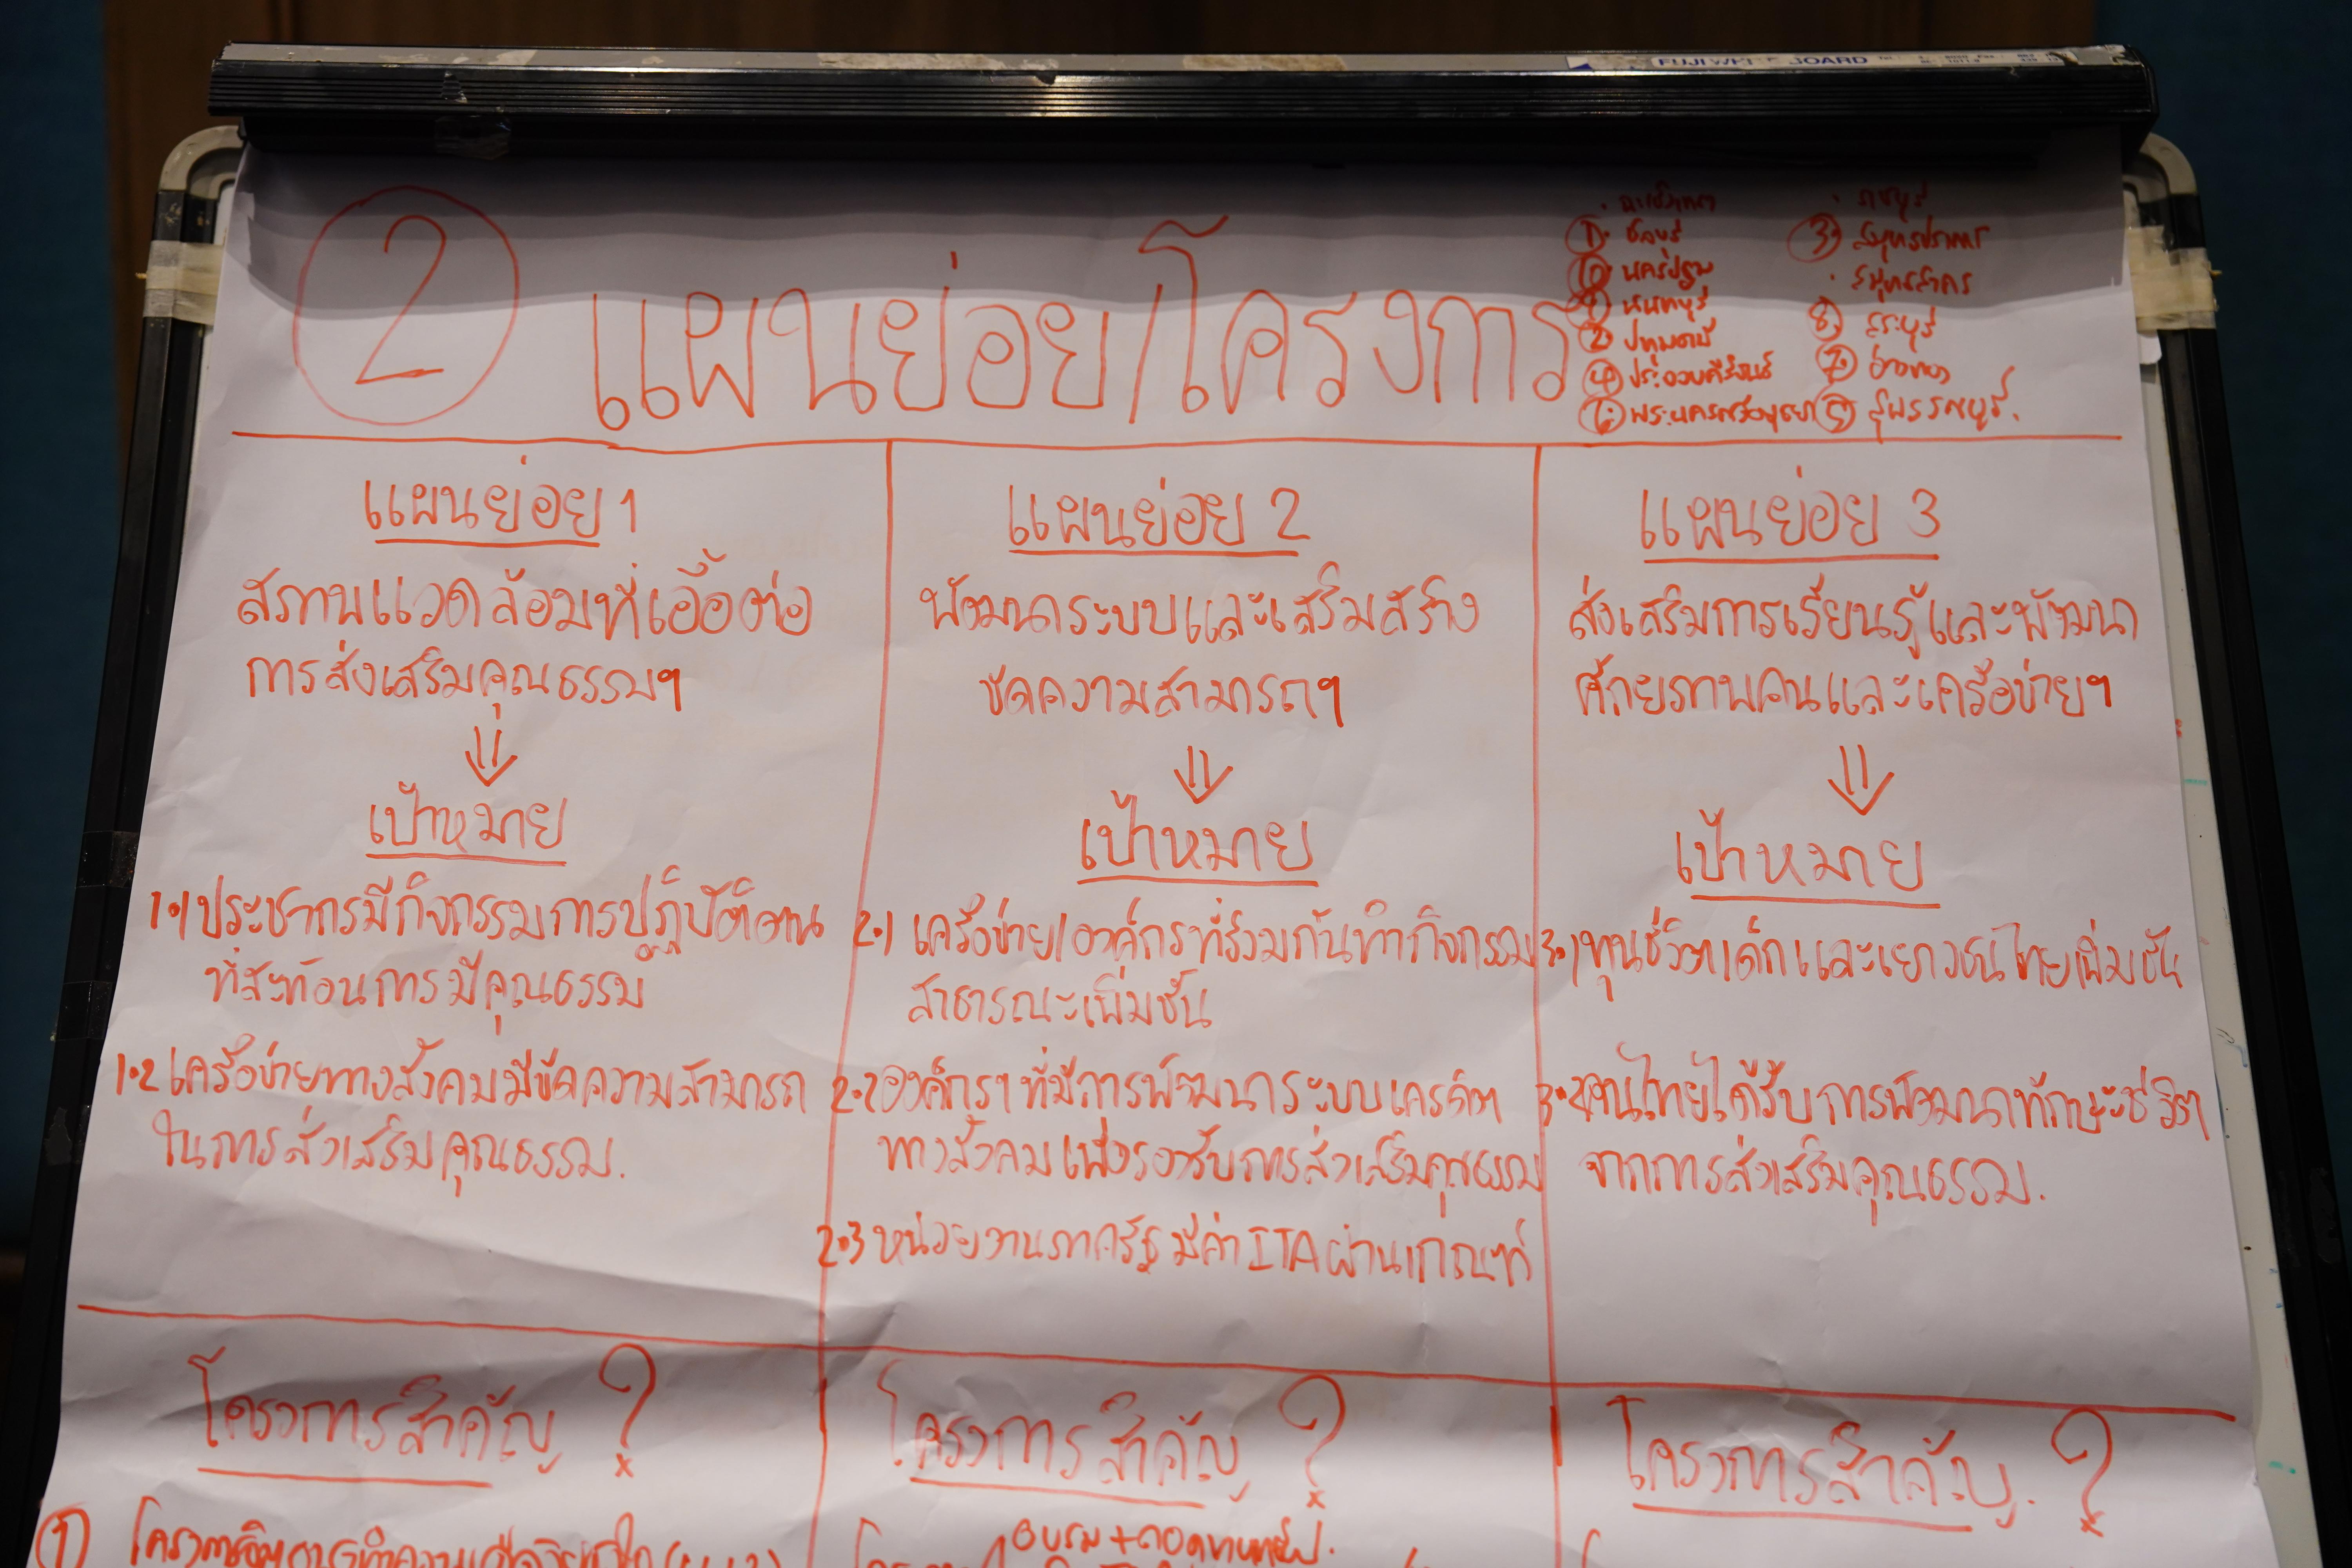 FUJI WHITE BOARD
2 แผนย่อย/โครงการ
· ฉะเชิงเทรา
ชลบุรี
นครปฐม
นนทบุรี
2. ปทุมธานี
4. ประจวบคีรีขันธ์
พระนครศรีอยุธยา
· ราชบุรี
3. สมุทรปราการ
· สมุทรสาคร
8. สระบุรี
7. อ่างทอง
5. สุพรรณบุรี.
แผนย่อย 1
สภาพแวดล้อมที่เอื้อต่อ
การส่งเสริมคุณธรรมฯ
เป้าหมาย
1.1 ประชากรมีกิจกรรมการปฏิบัติตน
ที่สะท้อนการมีคุณธรรม
1.2 เครือข่ายทางสังคมมีขีดความสามารถ
ในการส่งเสริมคุณธรรม.
แผนย่อย 2
พัฒนาระบบและเสริมสร้าง
ขีดความสามารถฯ
เป้าหมาย
2.1 เครือข่าย/องค์กรที่ร่วมกันทำกิจกรรม
สาธารณะเพิ่มขึ้น
2.2 องค์กรฯ ที่มีการพัฒนาระบบเครดิต
ทางสังคมเพื่อรองรับการส่งเสริมคุณธรรม
2.3 หน่วยงานภาครัฐ มีค่า ITA ผ่านเกณฑ์
แผนย่อย 3
ส่งเสริมการเรียนรู้และพัฒนา
ศักยภาพคนและเครือข่ายฯ
เป้าหมาย
3.1 ทุนชีวิตเด็กและเยาวชนไทยเพิ่มขึ้น
3.2 คนไทยได้รับการพัฒนาทักษะชีวิต
จากการส่งเสริมคุณธรรม.
โครงการสำคัญ ?
โครงการสำคัญ ?
โครงการสำคัญ. ?
อบรม+ถอดบทเรียน.